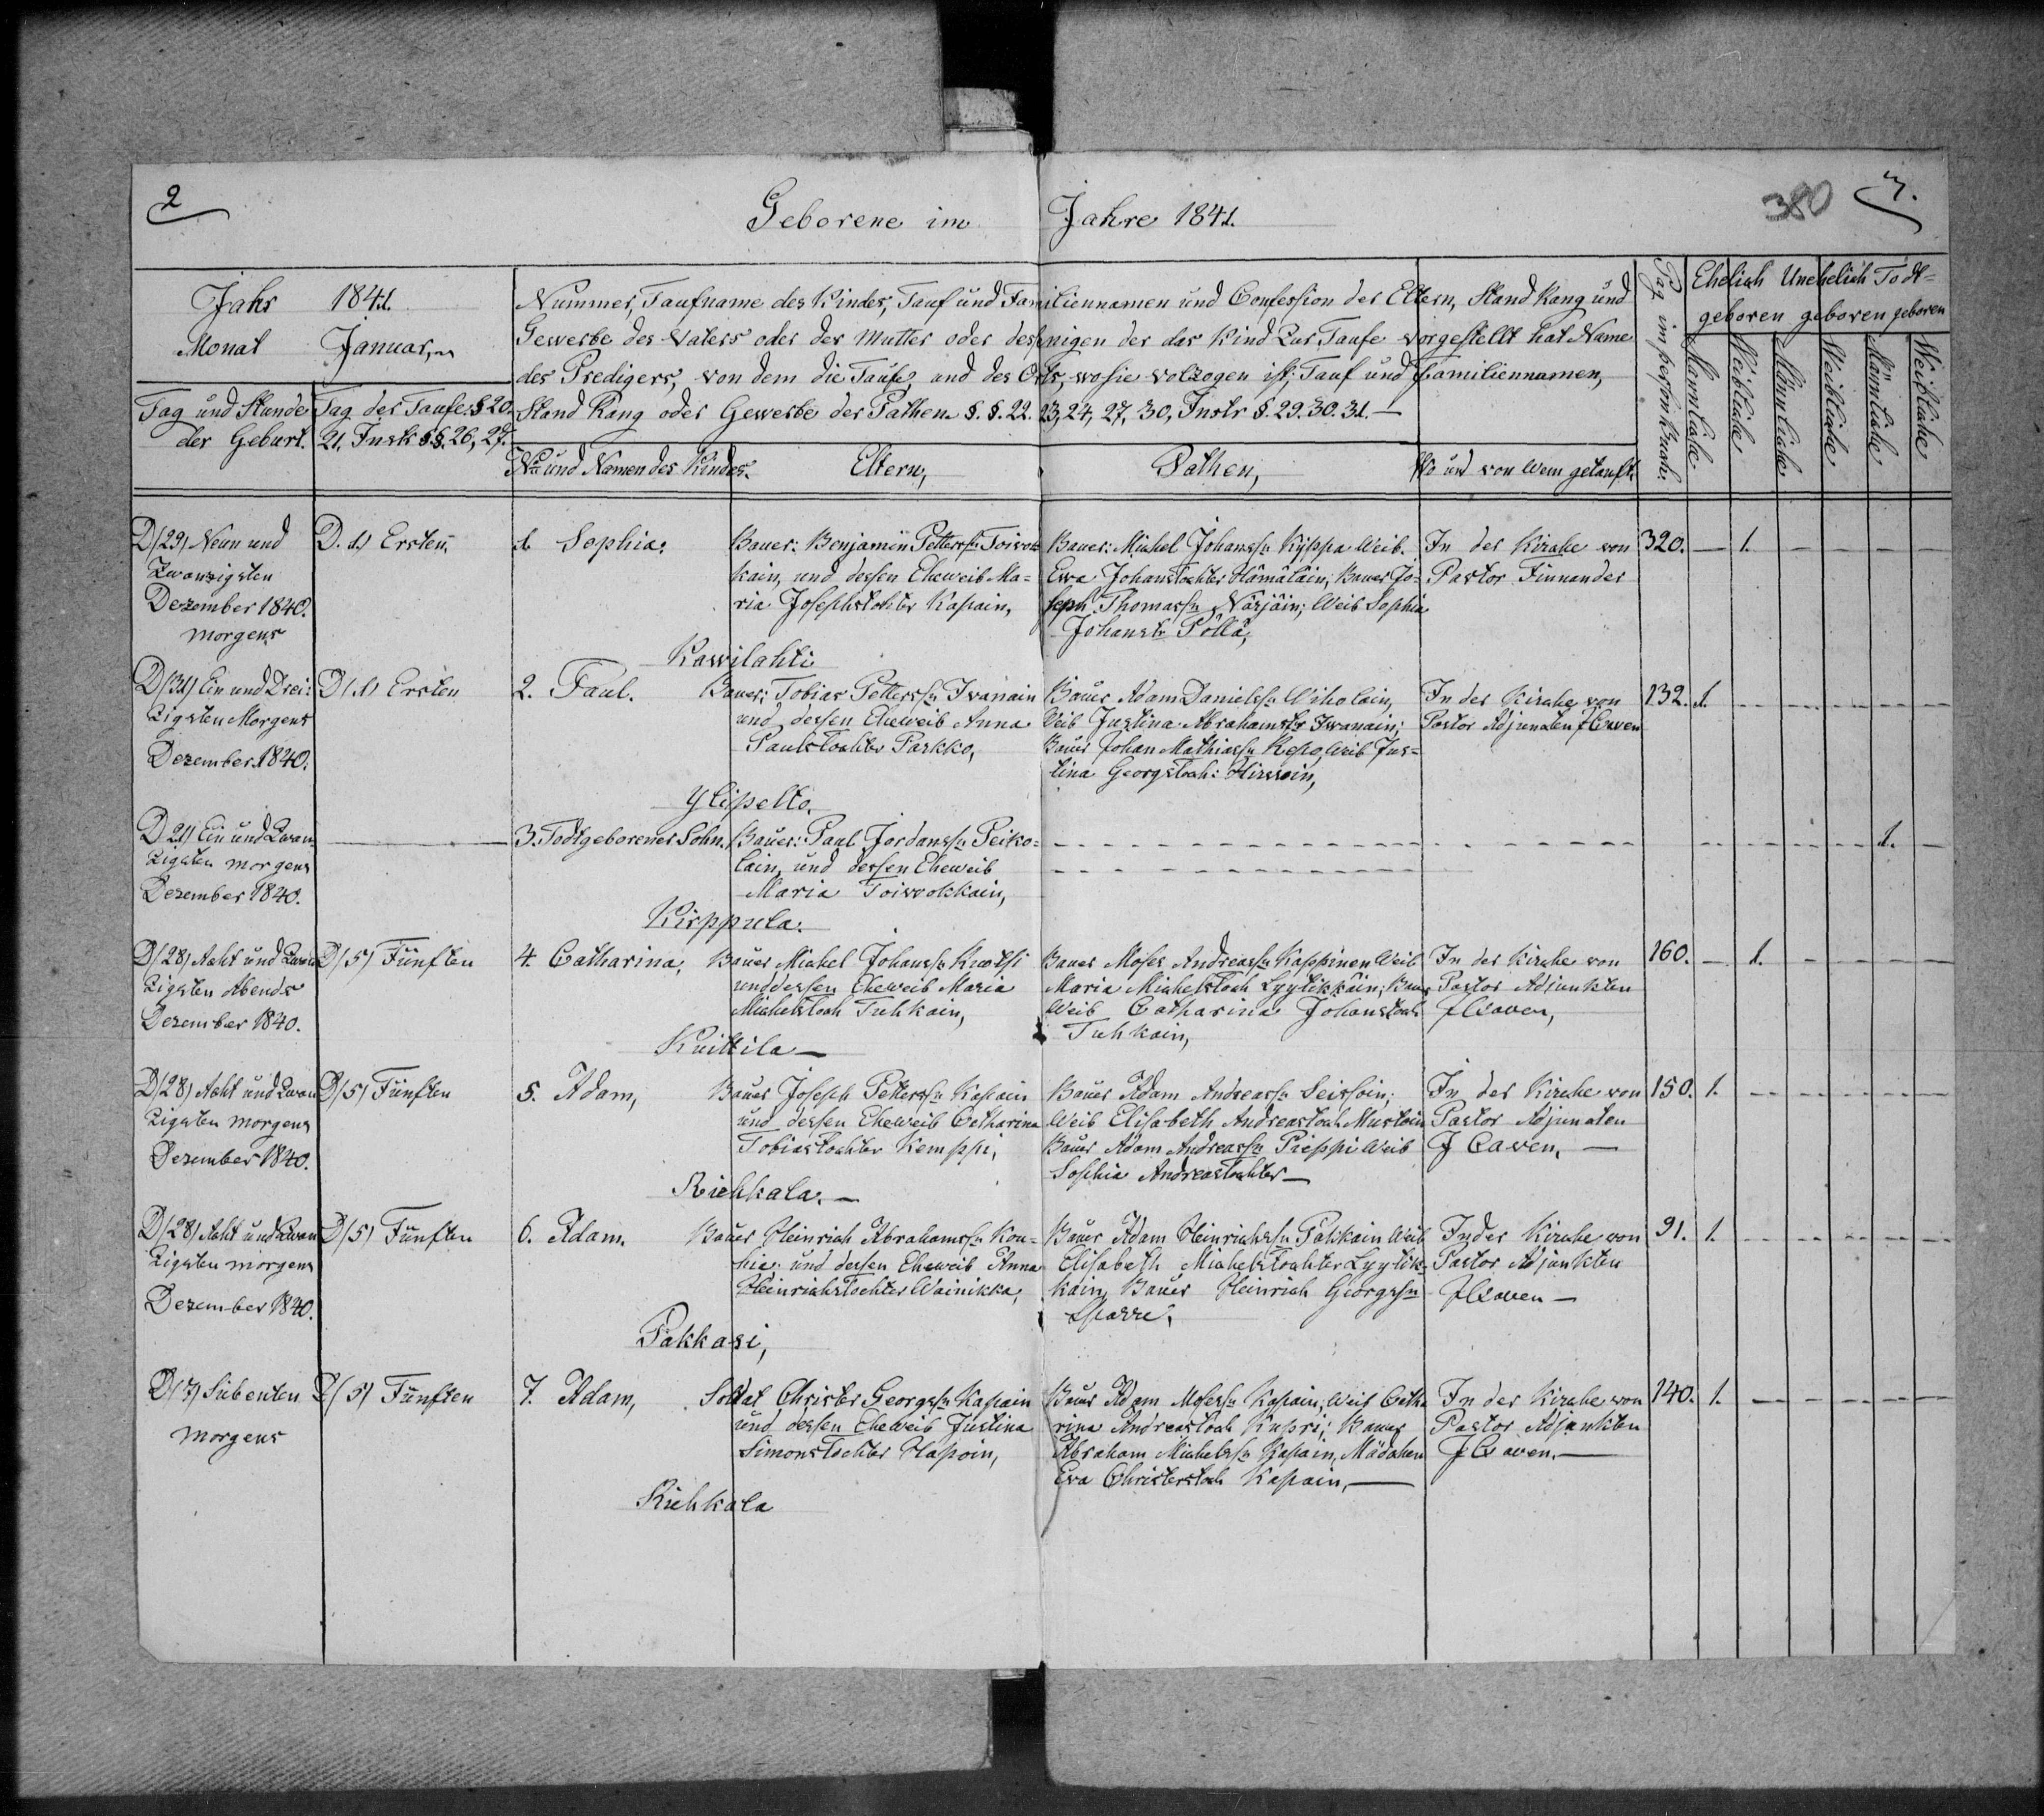 2
Geborene im Jahre 1841.
380
3.
Jahr 1841.
Monat Januar,
Nummer, Taufname des Kindes, Tauf und Familiennamen und Confession der Eltern, Stand Rang und
Gewerbe des Vaters oder der Mutter oder desjenigen der das Kind zur Taufe vorgestellt hat Name
des Predigers, von dem die Taufe, und des Orts, wo sie volzogen ist; Tauf und Familiennamen,
Stand Rang oder Gewerbe der Pathen §. §. 22. 23, 24, 27, 30, Instr §. 29. 30. 31. —
Tag und Stunde
der Geburt.
Tag der Taufe: § 20.
21. Instr §§. 26, 27.
No und Namen des Kindes.
Eltern,
Pathen,
Wo und von wem getauft.
Pag im personlbuch:
Ehelich Unehelich Todt-
geboren geboren geboren
Mannliche
Weibliche
Mänliche
Weibliche
Männliche
Weibliche
D/29) Neun und
zwanzigsten
Dezember 1840.
morgens
D. 1.) Ersten.
1. Sophia.
Bauer: Benjamin Petterssn Toiwok
kain, und dessen Eheweib Ma=
ria Josephstohter Kapain,
Kawilahti
Bauer: Michel Johanssn Kyppa Weib.
Ewa Johanstochter Hämäläin; Bauer Jo=
seph Thomassn Närjäin; Weib Sophia
Johanstr Pöllä,
In der Kirche von
Pastor Finnander
320. — 1. — — — —
D/31) Ein und Drei:
zigsten Morgens
Dezember. 1840.
D/1) Ersten
2. Paul.
Bauer: Tobias Petterssn Iwanain
und dessen Eheweib Anna
Paulstochter Parkko,
Ylipelto.
Bauer Adam Danielssn Wikolain,
Weib Justina Abrahamstr Iwanain;
Bauer Johan Mathiassn Repo, Weib Jus=
tina Georgstoch: Hirwoin,
In der Kirche von
Pastor Adjuncten J Caven
132. 1.
D 21) Ein und Zwan
zigsten morgens
Dezember 1840.
3. Todtgeborener Sohn.
Bauer: Paul Jordanssn Peiko=
lain, und dessen Eheweib
Maria Toiwokkain,
Kirppula.
1. —
D/28) Acht und Zwan
zigsten Abends
Dezember 1840.
D/5) Fünften
4. Catharina,
Bauer Michel Johanssn
und dessen Eheweib Maria
Michelstoch Tuhkain,
Kuittila —
Bauer Moses Andreassn Kappinen Weib
Maria Michelstoch Lyytikkäin; Bauer
Weib Catharina Johanstoch
Tuhkain,
In der Kirche von
Pastor Adjunkten
J Caven,
160. — 1. — — — —
D/28) Acht und Zwan
zigsten morgens
Dezember 1840.
D/5) Fünften
5. Adam,
Bauer Joseph Petterssn Kapain
und dessen Eheweib Catharina
Tobiastochter Kemppi,
Riehkala. —
Bauer Adam Andreassn Seissoin;
Weib Elisabeth Andreastoch Mustoin
Bauer Adam Andreassn Pieppi Weib
Sophia Andreastochter —
In der Kirche von
Pastor Adjuncten
J Caven, —
150. 1.
D/28) Acht und Zwan
zigsten morgens
Dezember 1840.
D/5) Fünften
6. Adam.
Bauer Heinrich Abrahamssn Kou=
hia, und dessen Eheweib Anna
Heinrichstochter Wainikka,
Pakkasi,
Bauer Adam Heinrichssn Pakkain Weib
Elisabeth Michelstochter Lyytik=
kain, Bauer Heinrich Georgssn
Sparre,
In der Kirche von
Pastor Adjunkten
J Caven —
91. 1.
D/7) Siebenten
morgens
D/5) Fünften
7. Adam,
Soldat Christer Georgssn Kapain
und dessen Eheweib Justina
Simonstochter Hapoin,
Riehkala
Bauer Adam Mosessn Kapain, Weib Catha
rina Andreastoch Kupri; Bauer
Abraham Michelssn Kapain, Mädchen
Ewa Christerstoch Kapain, —
In der Kirche von
Pastor Adjunkten
J Caven. —
140. 1. — — — — —